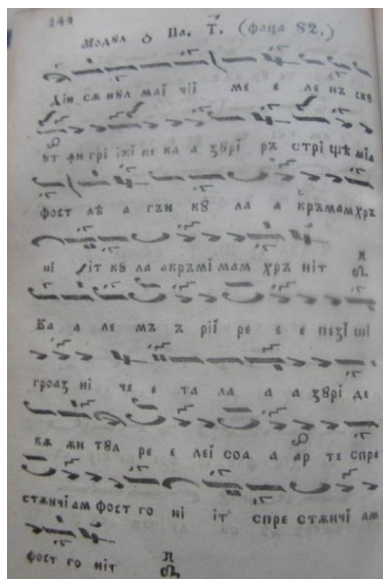 144
Модꙋл Пл. Т. (фаца 82.)
Дін сѫ нꙋл маї чїї ме е ле нъ скꙋ
ꙋт ꙟн грі їжі ке ка а ꙁꙋрї ръ стрі щѣ міа
фост лѣ а гън кꙋ ла а кръмам хръ
ні іт кꙋ ла акръмі мам хръ ніт
Ка а ле мъ ъ рії ре е е пеꙁї ші
гроаꙁ ні че е та ла а а ꙁꙋрі де
кѫ ꙟн тꙋл ре е леї соа а ар те спре
стѫнчі ам фост го ні іт спре стѫнчі ам
фост го ніт